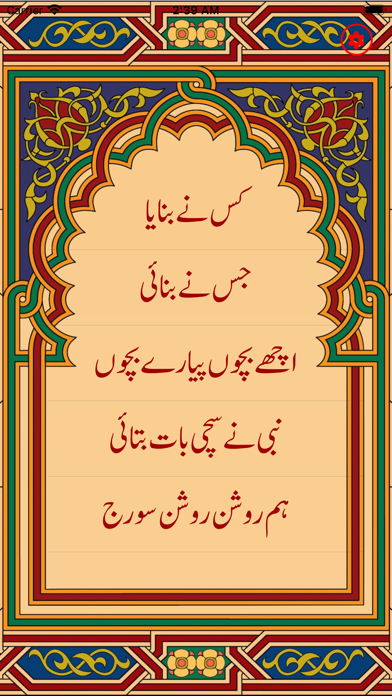 Carrier 2:39 AM
کس نے بنایا
جس نے بنائی
اچھے بچوں پیارے بچوں
نبی نے سچی بات بتائی
ہم روشن روشن سورج